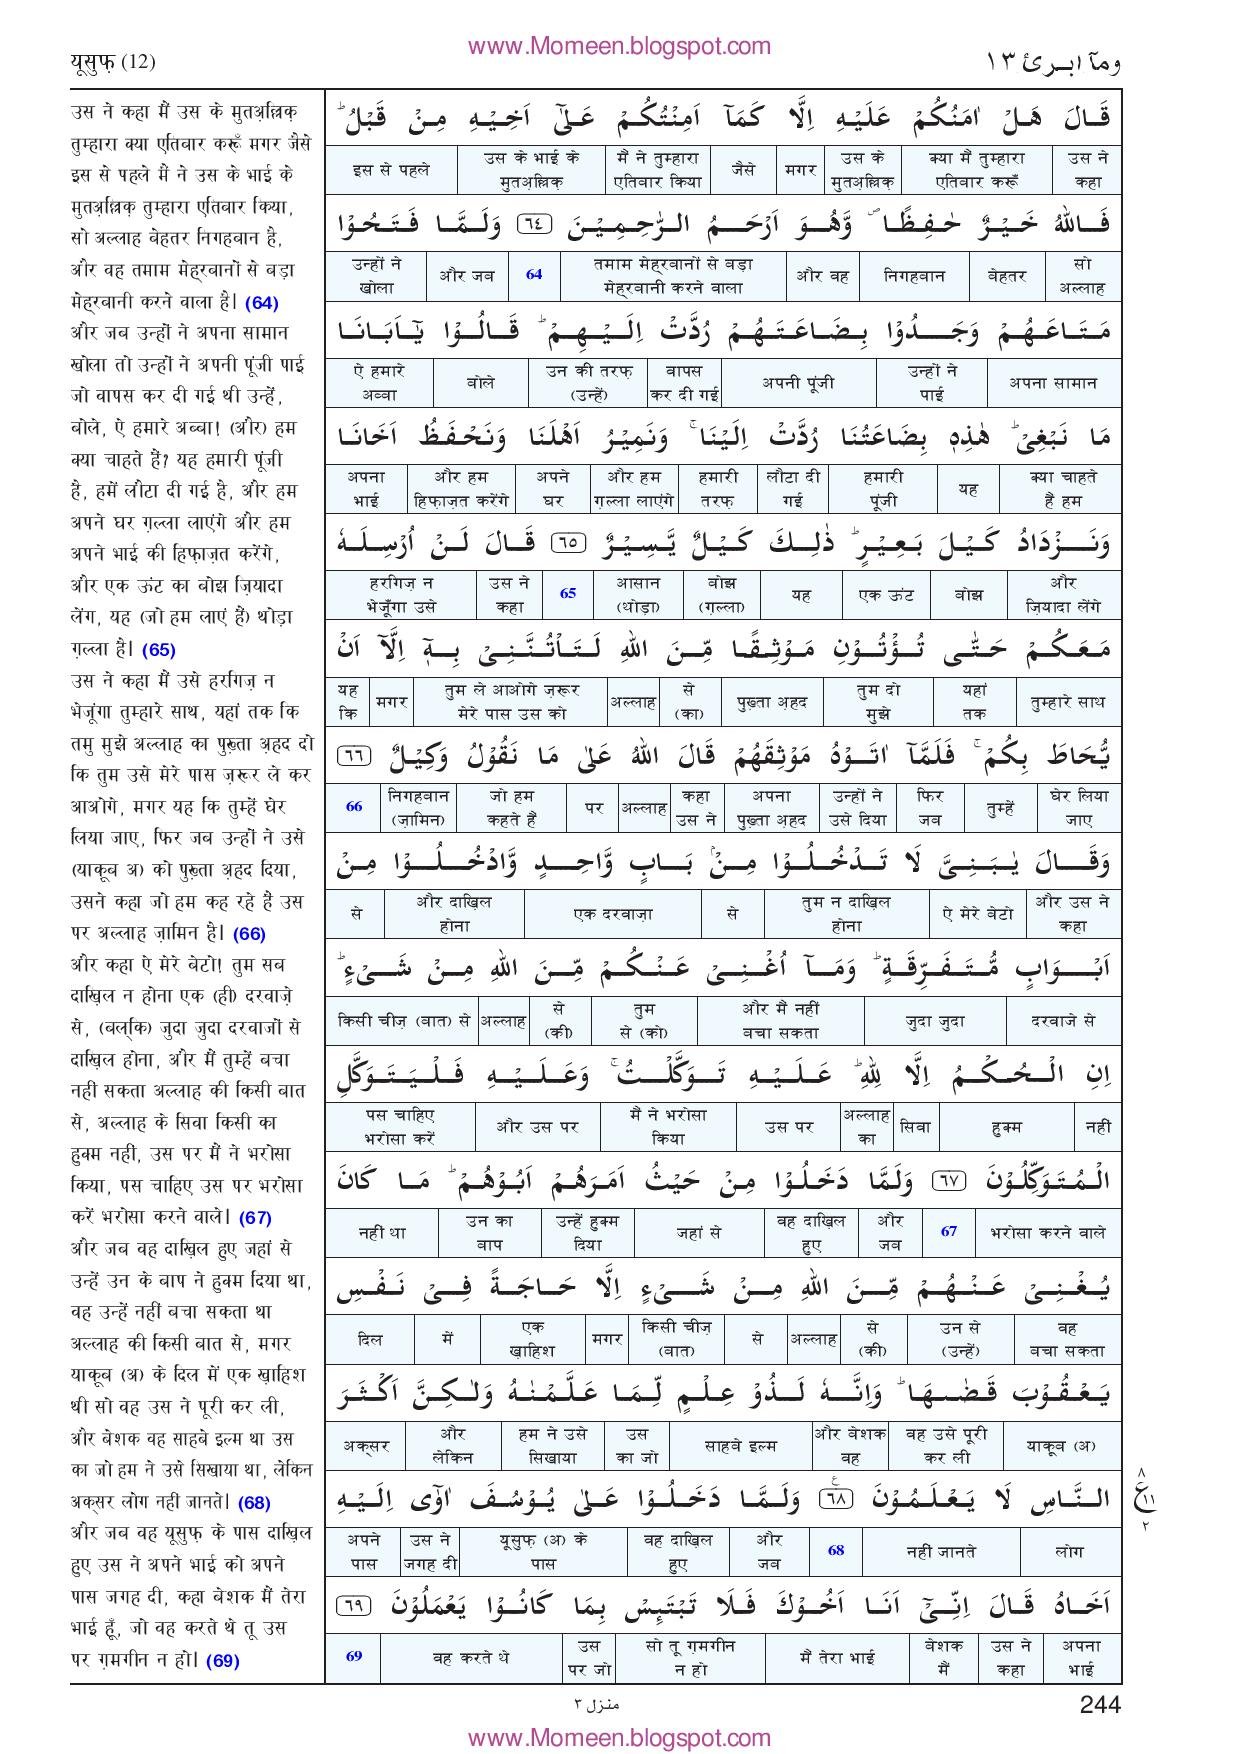 www.Momeen.blogspot.com
यूसुफ़ (12)
ومآ ابرئ ١٣
उस ने कहा मैं उस के मुतअ़ल्लिक़
तुम्हारा क्या एतिबार करूँ मगर जैसे
इस से पहले मैं ने उस के भाई के
मुतअ़ल्लिक़ तुम्हारा एतिबार किया,
सो अल्लाह बेहतर निगहबान है,
और वह तमाम मेह्‌रबानों से बड़ा
मेह्‌रबानी करने वाला है। (64)
और जब उन्हों ने अपना सामान
खोला तो उन्हों ने अपनी पूंजी पाई
जो वापस कर दी गई थी उन्हें,
बोले, ऐ हमारे अब्बा! (और) हम
क्या चाहते हैं? यह हमारी पूंजी
है, हमें लौटा दी गई है, और हम
अपने घर ग़ल्ला लाएंगे और हम
अपने भाई की हिफ़ाज़त करेंगे,
और एक ऊंट का बोझ ज़ियादा
लेंग, यह (जो हम लाएं हैं) थोड़ा
ग़ल्ला है। (65)
उस ने कहा मैं उसे हरगिज़ न
भेजूंगा तुम्हारे साथ, यहां तक कि
तमु मुझे अल्लाह का पुख़्ता अ़हद दो
कि तुम उसे मेरे पास ज़रूर ले कर
आओगे, मगर यह कि तुम्हें घेर
लिया जाए, फिर जब उन्हों ने उसे
(याकूब अ) को पुख़्ता अ़हद दिया,
उसने कहा जो हम कह रहे हैं उस
पर अल्लाह ज़ामिन है। (66)
और कहा ऐ मेरे बेटो! तुम सब
दाख़िल न होना एक (ही) दरवाज़े
से, (बल्‌कि) जुदा जुदा दरवाजों से
दाख़िल होना, और मैं तुम्हें बचा
नहीं सकता अल्लाह की किसी बात
से, अल्लाह के सिवा किसी का
हुक्म नहीं, उस पर मैं ने भरोसा
किया, पस चाहिए उस पर भरोसा
करें भरोसा करने वाले। (67)
और जब वह दाख़िल हुए जहां से
उन्हें उन के बाप ने हुक्म दिया था,
वह उन्हें नहीं बचा सकता था
अल्लाह की किसी बात से, मगर
याकूब (अ) के दिल में एक ख़ाहिश
थी सो वह उस ने पूरी कर ली,
और बेशक वह साहबे इल्म था उस
का जो हम ने उसे सिखाया था, लेकिन
अक्‌सर लोग नहीं जानते। (68)
और जब वह यूसुफ़ के पास दाख़िल
हुए उस ने अपने भाई को अपने
पास जगह दी, कहा बेशक मैं तेरा
भाई हूँ, जो वह करते थे तू उस
पर ग़मगीन न हो। (69)
قَالَ هَلْ اٰمَنُكُمْ عَلَيْهِ اِلَّا كَمَآ اَمِنْتُكُمْ عَلٰٓى اَخِيْهِ مِنْ قَبْلُ ؕ
इस से पहले उस के भाई के मुतअ़ल्लिक़ मैं ने तुम्हारा एतिबार किया जैसे मगर उस के मुतअ़ल्लिक़ क्या मैं तुम्हारा एतिबार करूँ उस ने कहा
فَاللّٰهُ خَيْرٌ حٰفِظًا ۪ وَّهُوَ اَرْحَمُ الرّٰحِمِيْنَ ﴿٦٤﴾ وَلَمَّا فَتَحُوْا
उन्हों ने खोला और जब 64 तमाम मेह्‌रबानों से बड़ा मेह्‌रबानी करने वाला और वह निगहबान बेहतर सो अल्लाह
مَتَاعَهُمْ وَجَدُوْا بِضَاعَتَهُمْ رُدَّتْ اِلَيْهِمْ ؕ قَالُوْا يٰٓاَبَانَا
ऐ हमारे अब्बा बोले उन की तरफ़ (उन्हें) वापस कर दी गई अपनी पूंजी उन्हों ने पाई अपना सामान
مَا نَبْغِىْ ؕ هٰذِهٖ بِضَاعَتُنَا رُدَّتْ اِلَيْنَا ۚ وَنَمِيْرُ اَهْلَنَا وَنَحْفَظُ اَخَانَا
अपना भाई और हम हिफ़ाज़त करेंगे अपने घर और हम ग़ल्ला लाएंगे हमारी तरफ़ लौटा दी गई हमारी पूंजी यह क्या चाहते हैं हम
وَنَزْدَادُ كَيْلَ بَعِيْرٍ ؕ ذٰلِكَ كَيْلٌ يَّسِيْرٌ ﴿٦٥﴾ قَالَ لَنْ اُرْسِلَهٗ
हरगिज़ न भेजूँगा उसे उस ने कहा 65 आसान (थोड़ा) बोझ (ग़ल्ला) यह एक ऊंट बोझ और ज़ियादा लेंगे
مَعَكُمْ حَتّٰى تُؤْتُوْنِ مَوْثِقًا مِّنَ اللّٰهِ لَتَاْتُنَّنِىْ بِهٖٓ اِلَّآ اَنْ
यह कि मगर तुम ले आओगे ज़रूर मेरे पास उस को अल्लाह से (का) पुख़्ता अ़हद तुम दो मुझे यहां तक तुम्हारे साथ
يُّحَاطَ بِكُمْ ۚ فَلَمَّآ اٰتَوْهُ مَوْثِقَهُمْ قَالَ اللّٰهُ عَلٰى مَا نَقُوْلُ وَكِيْلٌ ﴿٦٦﴾
66 निगहबान (ज़ामिन) जो हम कहते हैं पर अल्लाह कहा उस ने अपना पुख़्ता अ़हद उन्हों ने उसे दिया फिर जब तुम्हें घेर लिया जाए
وَقَالَ يٰبَنِىَّ لَا تَدْخُلُوْا مِنْۢ بَابٍ وَّاحِدٍ وَّادْخُلُوْا مِنْ
से और दाख़िल होना एक दरवाज़ा से तुम न दाख़िल होना ऐ मेरे बेटो और उस ने कहा
اَبْوَابٍ مُّتَفَرِّقَةٍ ؕ وَمَآ اُغْنِىْ عَنْكُمْ مِّنَ اللّٰهِ مِنْ شَىْءٍ ؕ
किसी चीज़ (बात) से अल्लाह से (की) तुम से (को) और मैं नहीं बचा सकता जुदा जुदा दरवाजे से
اِنِ الْحُكْمُ اِلَّا لِلّٰهِ ؕ عَلَيْهِ تَوَكَّلْتُ ۚ وَعَلَيْهِ فَلْيَتَوَكَّلِ
पस चाहिए भरोसा करें और उस पर मैं ने भरोसा किया उस पर अल्लाह का सिवा हुक्म नहीं
الْمُتَوَكِّلُوْنَ ﴿٦٧﴾ وَلَمَّا دَخَلُوْا مِنْ حَيْثُ اَمَرَهُمْ اَبُوْهُمْ ؕ مَا كَانَ
नहीं था उन का बाप उन्हें हुक्म दिया जहां से वह दाख़िल हुए और जब 67 भरोसा करने वाले
يُغْنِىْ عَنْهُمْ مِّنَ اللّٰهِ مِنْ شَىْءٍ اِلَّا حَاجَةً فِىْ نَفْسِ
दिल में एक ख़ाहिश मगर किसी चीज़ (बात) से अल्लाह से (की) उन से (उन्हें) वह बचा सकता
يَعْقُوْبَ قَضٰىهَا ؕ وَاِنَّهٗ لَذُوْ عِلْمٍ لِّمَا عَلَّمْنٰهُ وَلٰكِنَّ اَكْثَرَ
अक्‌सर और लेकिन हम ने उसे सिखाया उस का जो साहबे इल्म और बेशक वह वह उसे पूरी कर ली याकूब (अ)
النَّاسِ لَا يَعْلَمُوْنَ ﴿٦٨﴾ وَلَمَّا دَخَلُوْا عَلٰى يُوْسُفَ اٰوٰٓى اِلَيْهِ
अपने पास उस ने जगह दी यूसुफ़ (अ) के पास वह दाख़िल हुए और जब 68 नहीं जानते लोग
٨ ع ١١ ٢
اَخَاهُ قَالَ اِنِّىْٓ اَنَا اَخُوْكَ فَلَا تَبْتَئِسْ بِمَا كَانُوْا يَعْمَلُوْنَ ﴿٦٩﴾
69 वह करते थे उस पर जो सो तू ग़मगीन न हो मैं तेरा भाई बेशक मैं उस ने कहा अपना भाई
منزل ٣
244
www.Momeen.blogspot.com